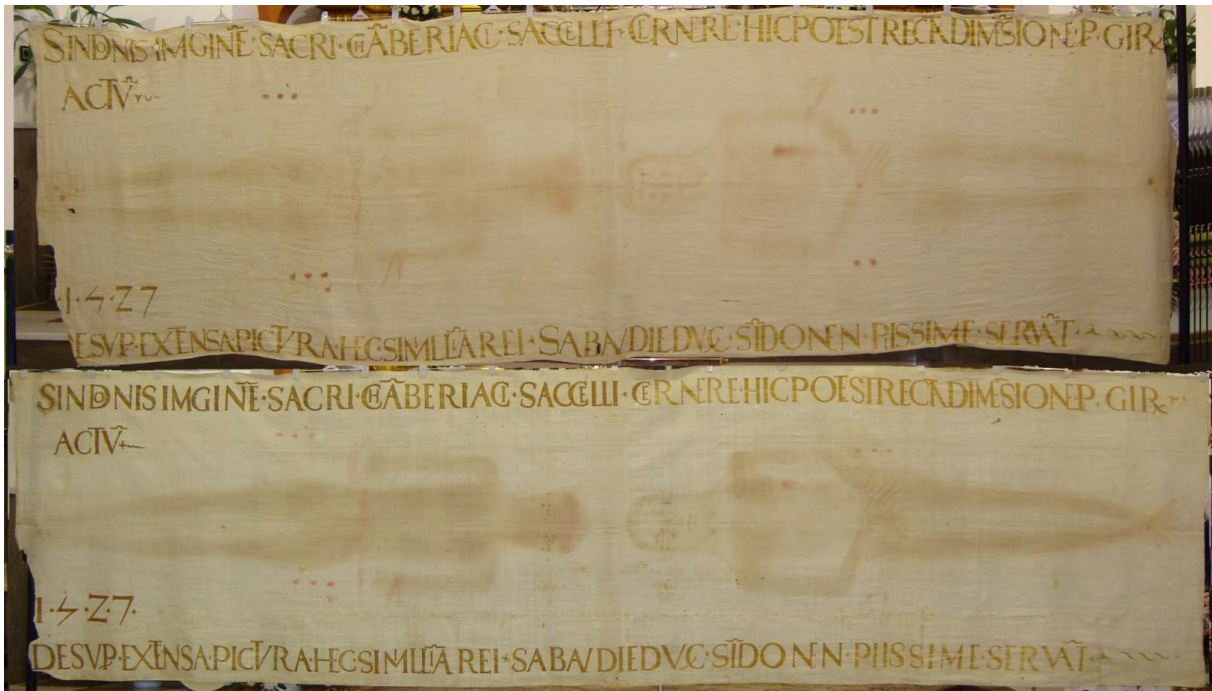 SINDONIS·IMGINĒ·SACRI·CHÂBERIACI·SACCELLI·CERNERE·HIC POEST RECTA DIMSIONE·P·GIR
ACTV̂
·1·5·27
DESVP·EXTENSA PICTVRA HEC SIMILLIA REI·SABAVDIE DVC·SIDONEN·PIISSIME·SERVAT·
SINDONIS IMGINĒ·SACRI·CHÂBERIACI·SACCELLI·CERNERE·HIC POEST RECTA DIMSIONE P·GIR
ACTV̂
1·5·27·
DESVP·EXTENSA·PICTVRA·HEC SIMILLIA REI·SABAVDIE DVC·SIDONEN·PIISSIME·SERVAT·